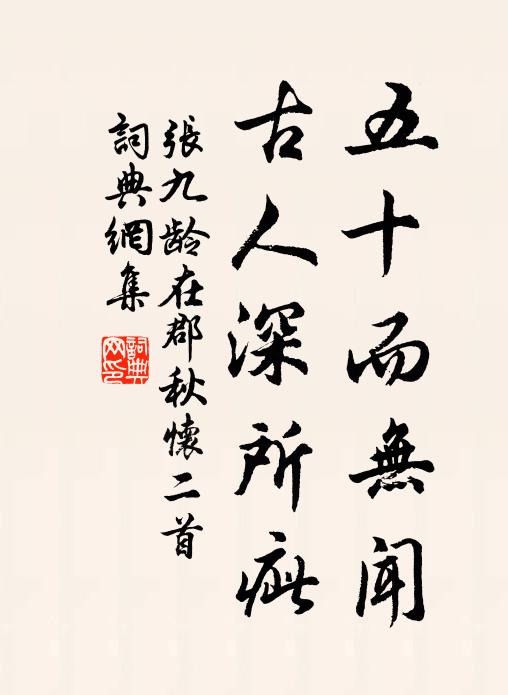 五十而無聞
古人深所疵
張九齡在郡秋懷二首
詞典網集
詞典網印